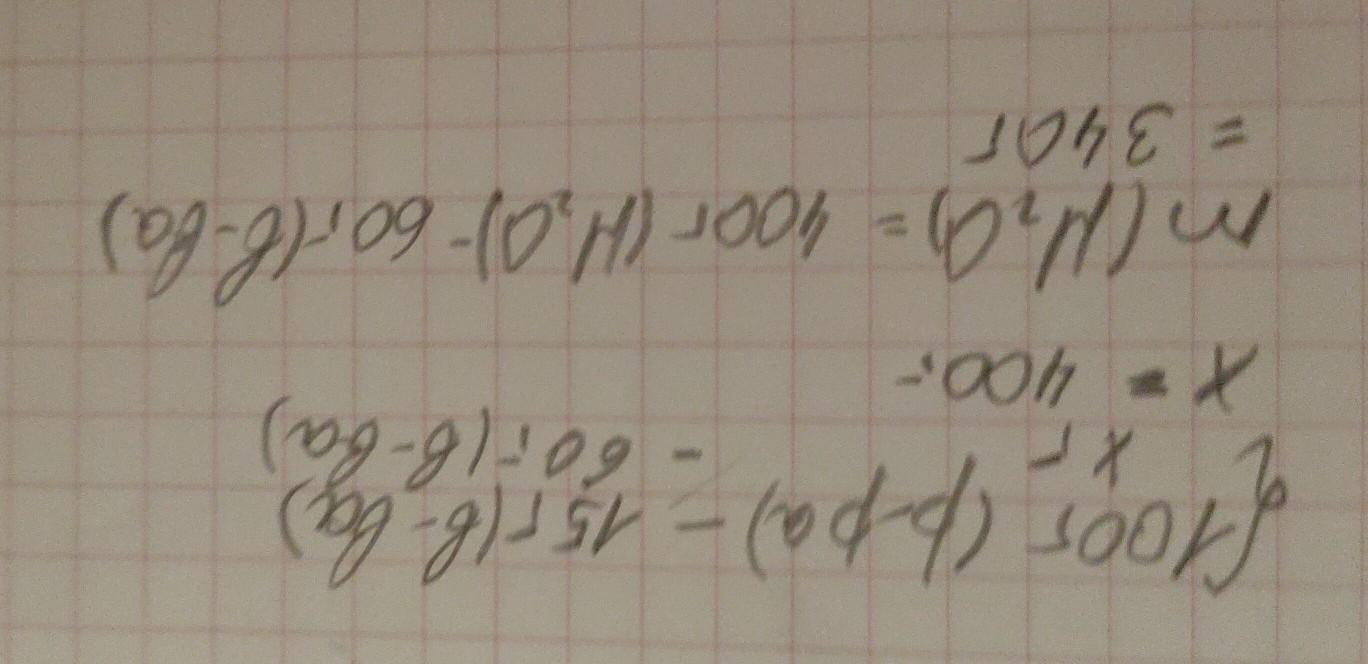 {100г (р-ра) – 15г (в-ва)
хг – 60г (в-ва)
х = 400г
m(H₂O) = 400г (H₂O) - 60г (в-ва)
= 340г